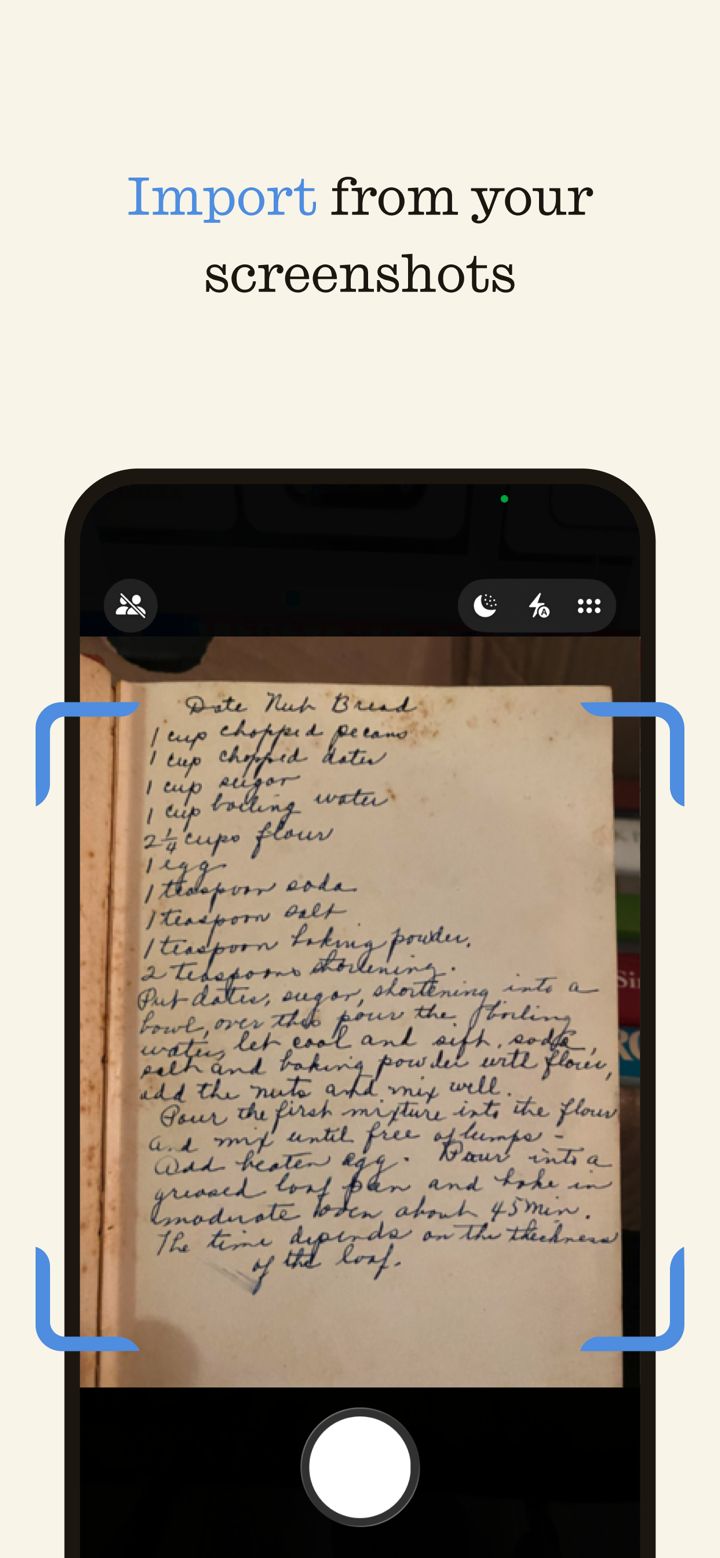 Import from your
screenshots
A
Date Nut Bread
1 cup chopped pecans
1 cup chopped dates
1 cup sugar
1 cup boiling water
2 1/4 cups flour
1 egg
1 teaspoon soda
1 teaspoon salt
1 teaspoon baking powder.
2 teaspoons shortening.
Put dates, sugar, shortening into a
bowl, over this pour the boiling
water, let cool and sift, soda,
salt and baking powder with flour,
add the nuts and mix well.
Pour the first mixture into the flour
and mix until free of lumps -
Add beaten egg. Pour into a
greased loaf pan and bake in
moderate oven about 45 min.
The time depends on the thickness
of the loaf.